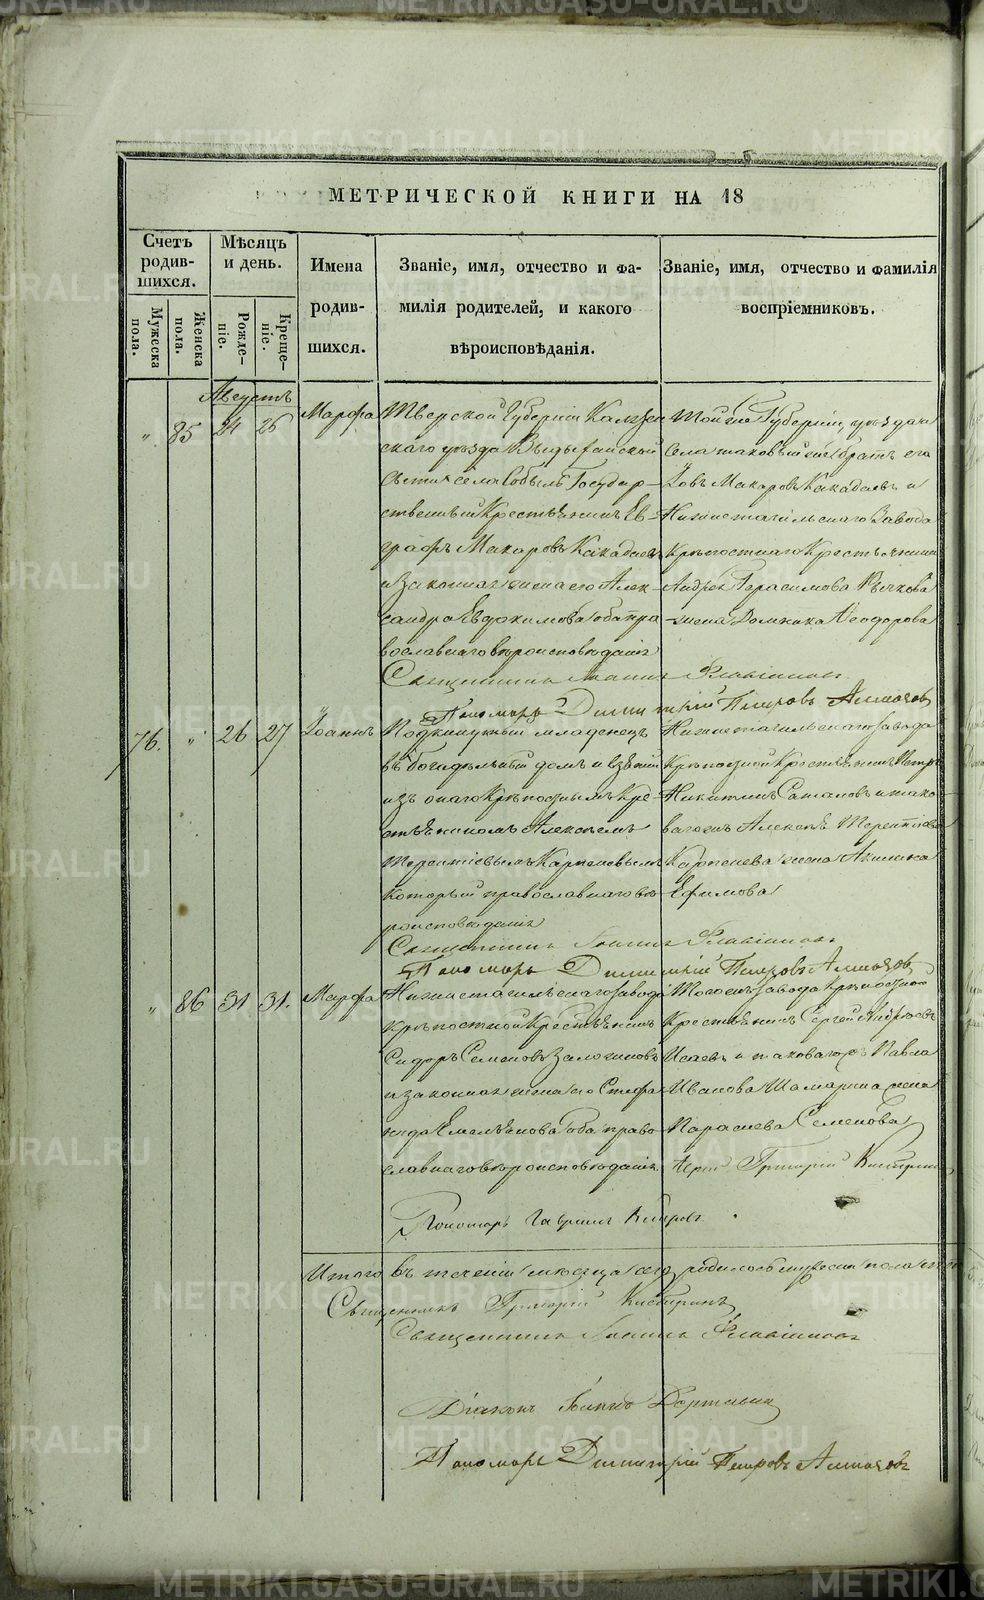 METRIKI.GASO-URAL.RU
МЕТРИЧЕСКОЙ КНИГИ НА 18
Счетъ родив-шихся.
Мужеска пола.
Женска пола.
Мѣсяцъ и день.
Рожде-ніе.
Креще-ніе.
Имена
родив-
шихся.
Званіе, имя, отчество и фа-
милія родителей, и какого
вѣроисповѣданія.
Званіе, имя, отчество и фамилія
воспріемниковъ.
Августъ
" 85 24 26 Марфа
Тверской Губерніи Калязин
скаго уѣзда
села Государ-
ственный Крестьянинъ Ев-
графъ Макаровъ Какадаевъ
и законная жена его Алек-
сандра Евдокимова оба пра
вославнаго вѣроисповѣданія
Той же Губерніи, уѣзда и
села таковый же братъ его
Іовъ Макаровъ Какадаевъ и
Нижнетагильскаго Завода
Крѣпостнаго Крестьянина
Андрея Герасимова Бычкова
жена Домника Ѳеодорова
Священникъ Іоаннъ Флавіановъ
Пономарь Димитрій Петровъ Алмазовъ
76. " 26 27 Іоаннъ
Подкинутый младенецъ
въ богадѣльный домъ и взятый
изъ онаго Крѣпостнымъ Кре-
стьяниномъ Алексѣемъ
Терентіевымъ Карпенковымъ
который православнаго вѣ
роисповѣданія
Нижнетагильскаго завода
Крѣпостной Крестьянинъ Петръ
Никитинъ и тако-
ваго же Алексѣя Терентіева
жена Акилина
Ефимова
Священникъ Іоаннъ Флавіановъ
Пономарь Димитрій Петровъ Алмазовъ
" 86 31 31. Марфа
Нижнетагильскаго завода
крѣпостной Крестьянинъ
Сидоръ Семеновъ Заложновъ
и законная жена его Стефа
нида Емельянова оба право
славнаго вѣроисповѣданія.
Того же завода Крѣпостной
Крестьянинъ Сергей Андреевъ
Исаевъ и таковаго же Павла
Иванова Шамарина жена
Параскева Семенова
Іерей Григорій
Пономарь Гавріилъ Кипровъ.
Итого въ теченіи мѣсяца сего родилось мужеска пола
Священникъ Григорій
Священникъ Іоаннъ Флавіановъ
Діаконъ
Пономарь Димитрій Петровъ Алмазовъ